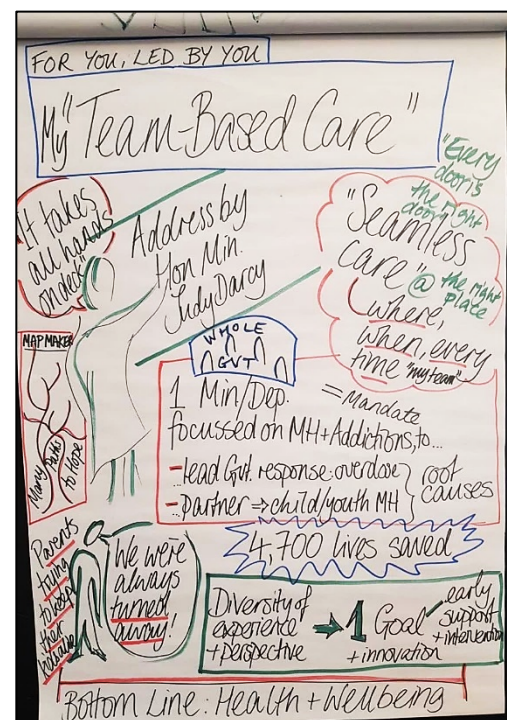 FOR YOU, LED BY YOU
My "Team-Based Care"
"It takes
all hands
on deck"
Address by
Hon Min.
Judy Darcy
"Every
door is
the right
door"
"Seamless
care" @ the right
place
where,
when, every
time "my team"
MAP MAKER
Many Paths
to Hope
WHOLE
GVT
1 Min/Dep. = Mandate
focussed on MH+Addictions, to...
- lead Gvt. response: overdose
- partner → child/youth MH
root
causes
4,700 lives saved
Parents
trying
to keep
their
kid alive
We were
always
turned
away!
Diversity of
experience
+perspective
→ 1 Goal
+ innovation
✓ early
support
+ intervention
Bottom Line: Health + Wellbeing